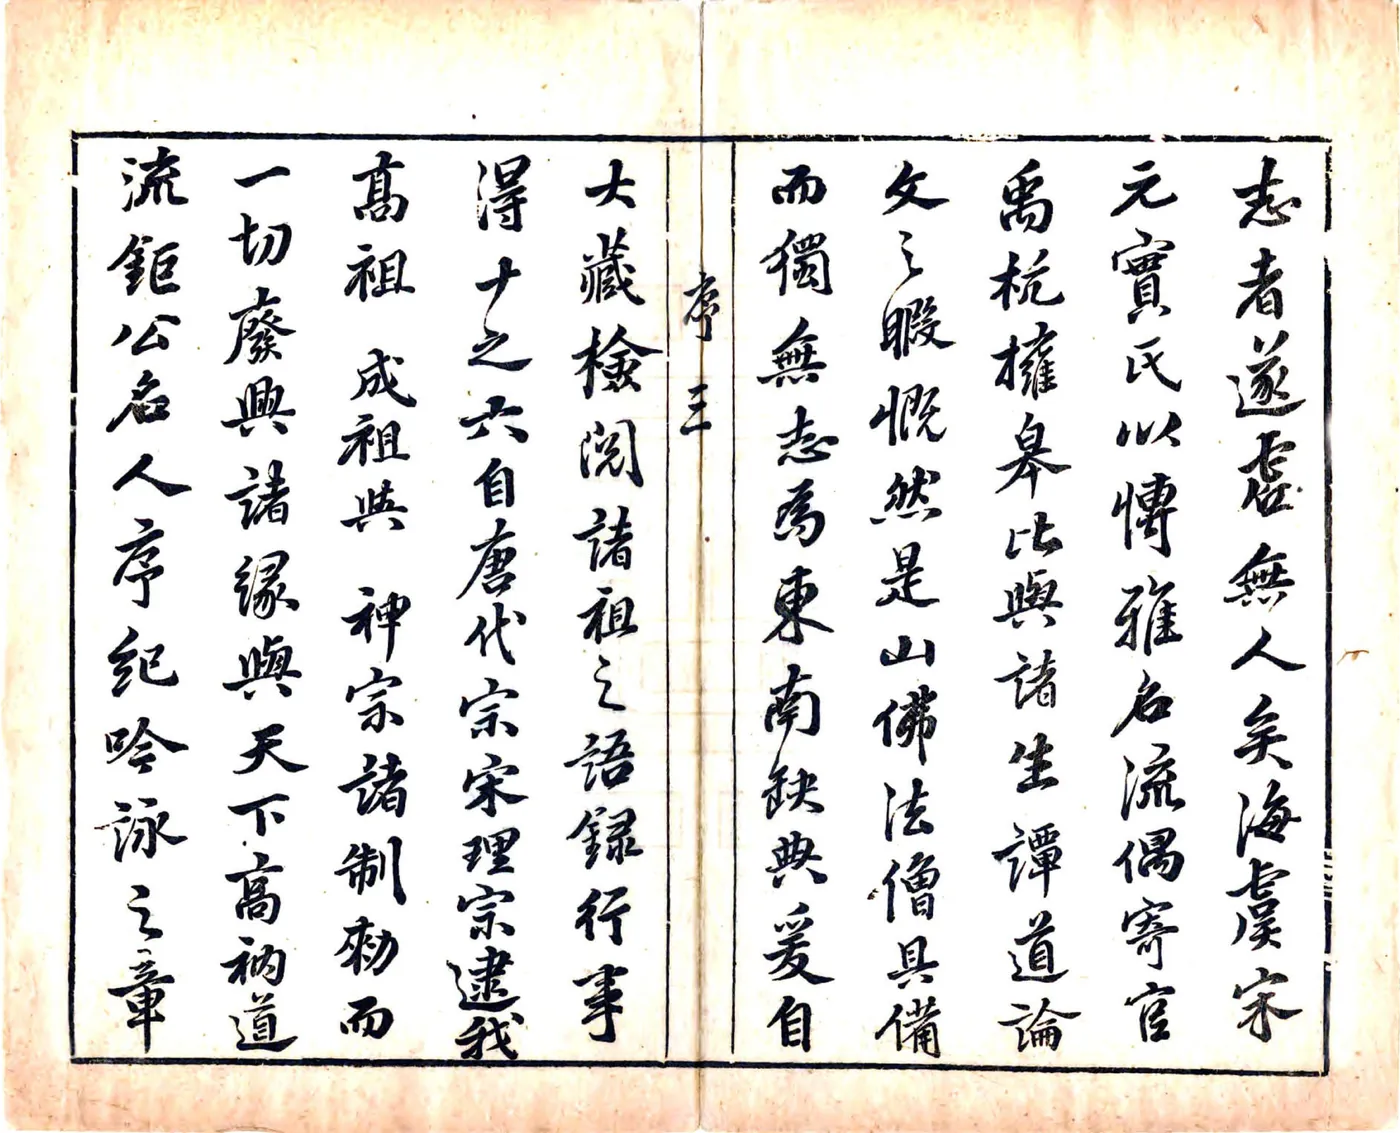 志者遂虛無人矣海虞宋
元實氏以博雅名流偶寄官
禹杭擁皋比與諸生譚道論
文之暇慨然是山佛法僧具備
而獨無志為東南缺典爰自
序 三
大藏檢閱諸祖之語錄行事
得十之六自唐代宗宋理宗逮我
高祖 成祖與 神宗諸制勅而
一切廢興諸緣與天下高衲道
流鉅公名人序紀吟詠之章